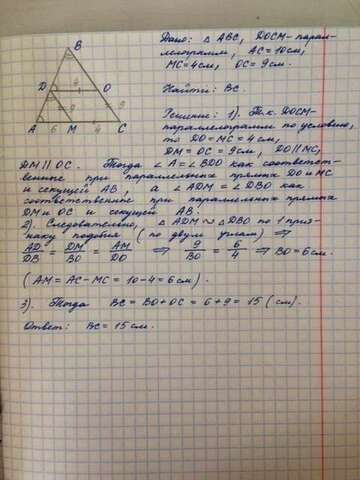 B
D 4 O
9 9
A 6 M 4 C
Дано: △ ABC, DOCM - парал-
лелограмм, AC = 10см,
MC = 4см, OC = 9см.
Найти: BC.
Решение: 1). Т.к. DOCM-
параллелограмм по условию,
то DO = MC = 4см,
DM = OC = 9см, DO ∥ MC,
DM ∥ OC. Тогда ∠A = ∠BDO как соответст-
венные при параллельных прямых DO и MC
и секущей AB, а ∠ADM = ∠DBO как
соответственные при параллельных прямых
DM и OC и секущей AB.
2). Следовательно, △ADM ∾ △DBO по 1 приз-
наку подобия (по двум углам) ⇒
AD/DB = DM/BO = AM/DO ⇒ 9/BO = 6/4 ⇒ BO = 6см.
(AM = AC - MC = 10 - 4 = 6 см).
3). Тогда BC = BO + OC = 6 + 9 = 15 (см).
Ответ: BC = 15 см.